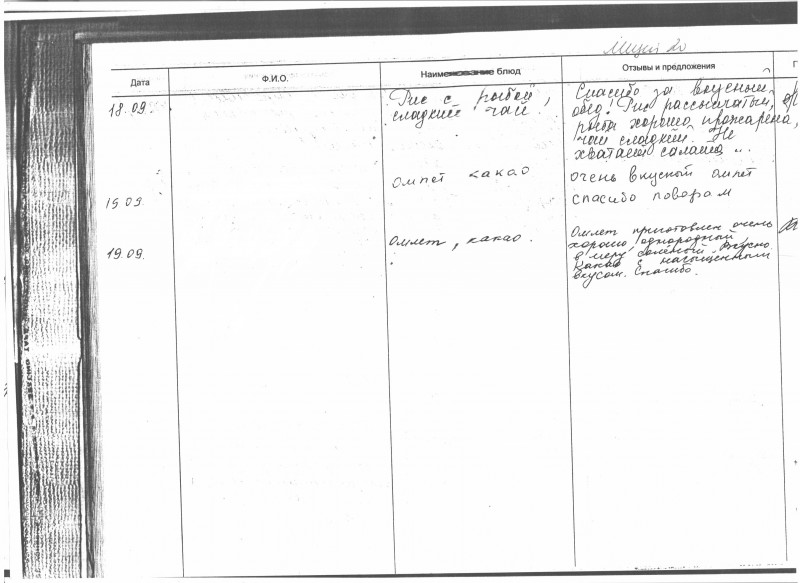 Дата
Ф.И.О.
Наименование блюд
Отзывы и предложения
18.09.
Рис с рыбой,
сладкий чай.
Спасибо за вкусный
обед! Рис рассыпчатый,
рыба хорошо прожарена,
чай сладкий. Не
хватает салата...
15.09.
омлет какао
очень вкусной омлет
спасибо поворам
19.09.
омлет, какао.
Омлет приготовлен очень
хорошо, однородный,
в меру соленый. Вкусно.
Какао с насыщенным
вкусом. Спасибо.